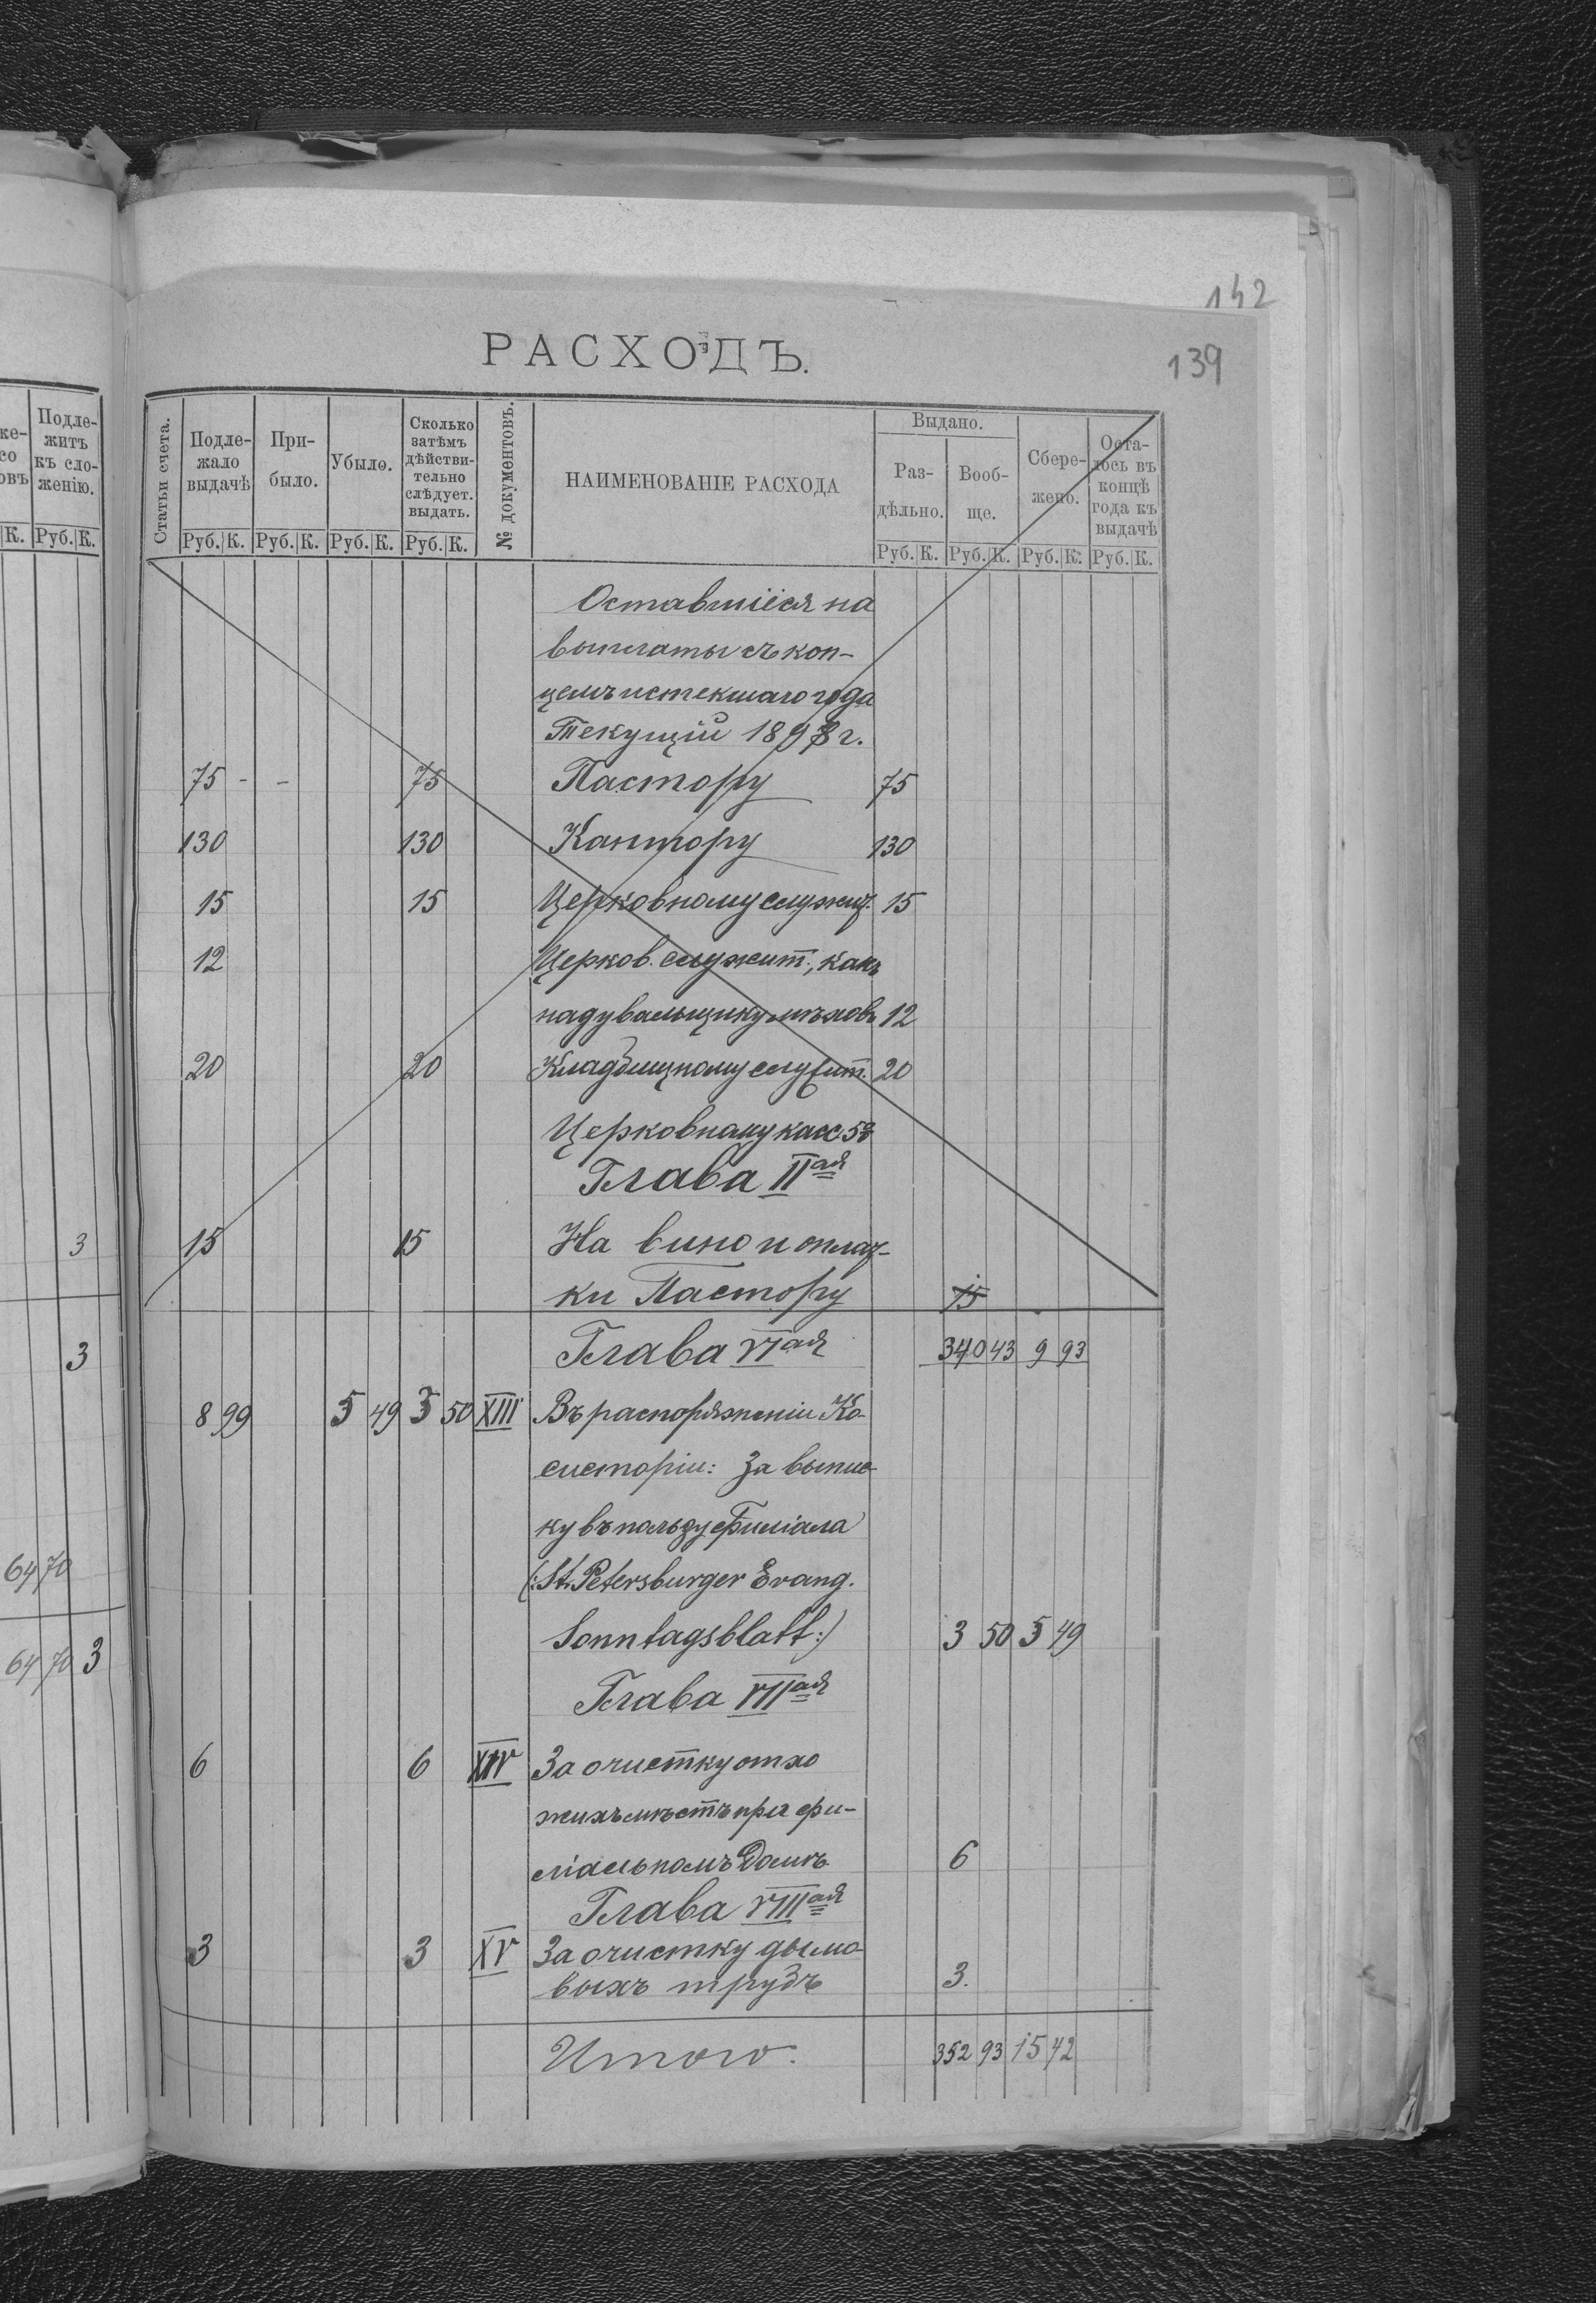 142
139
РАСХОДЪ.
Подле-
житъ
къ сло-
женію.
К. Руб. К.
Статьи счета.
Подле-
жало
выдачѣ
Руб. К.
При-
было.
Руб. К.
Убыло.
Руб. К.
Сколько
затѣмъ
дѣйстви-
тельно
слѣдует.
выдать.
Руб. К.
№ документовъ.
НАИМЕНОВАНІЕ РАСХОДА
Выдано.
Раз-
дѣльно.
Руб. К.
Вооб-
ще.
Руб. К.
Сбере-
жено.
Руб. К.
Оста-
лось въ
концѣ
года къ
выдачѣ
Руб. К.
Оставшіеся на
выплаты съ кон-
цемъ истекшаго года
Текущій 1898 г.
75 - - 75 Пастору 75
130 130 Кантору 130
15 15 Церковному служит. 15
12 Церков. служит., какъ
надувальщику мѣховъ 12
20 20 Кладбищному служит. 20
Церковному касс
Глава IIая
15 15 На вино и оплат-
ки Пастору 15
Глава VIая 340 43 9 93
8 99 5 49 3 50 XIII Въ распоряженіи Ко-
систоріи: За выпис-
ку въ пользу Филіала
(:St. Petersburger Evang.
Sonntagsblatt:) 3 50 5 49
Глава VIIая
6 6 XIV За очистку отхо
жихъ мѣстъ при фи-
ліальномъ Домѣ 6
Глава VIIIая
3 3 XV За очистку дымо-
выхъ трубъ 3.
Итого. 352 93 15 42
3
3
64 70
64 70 3